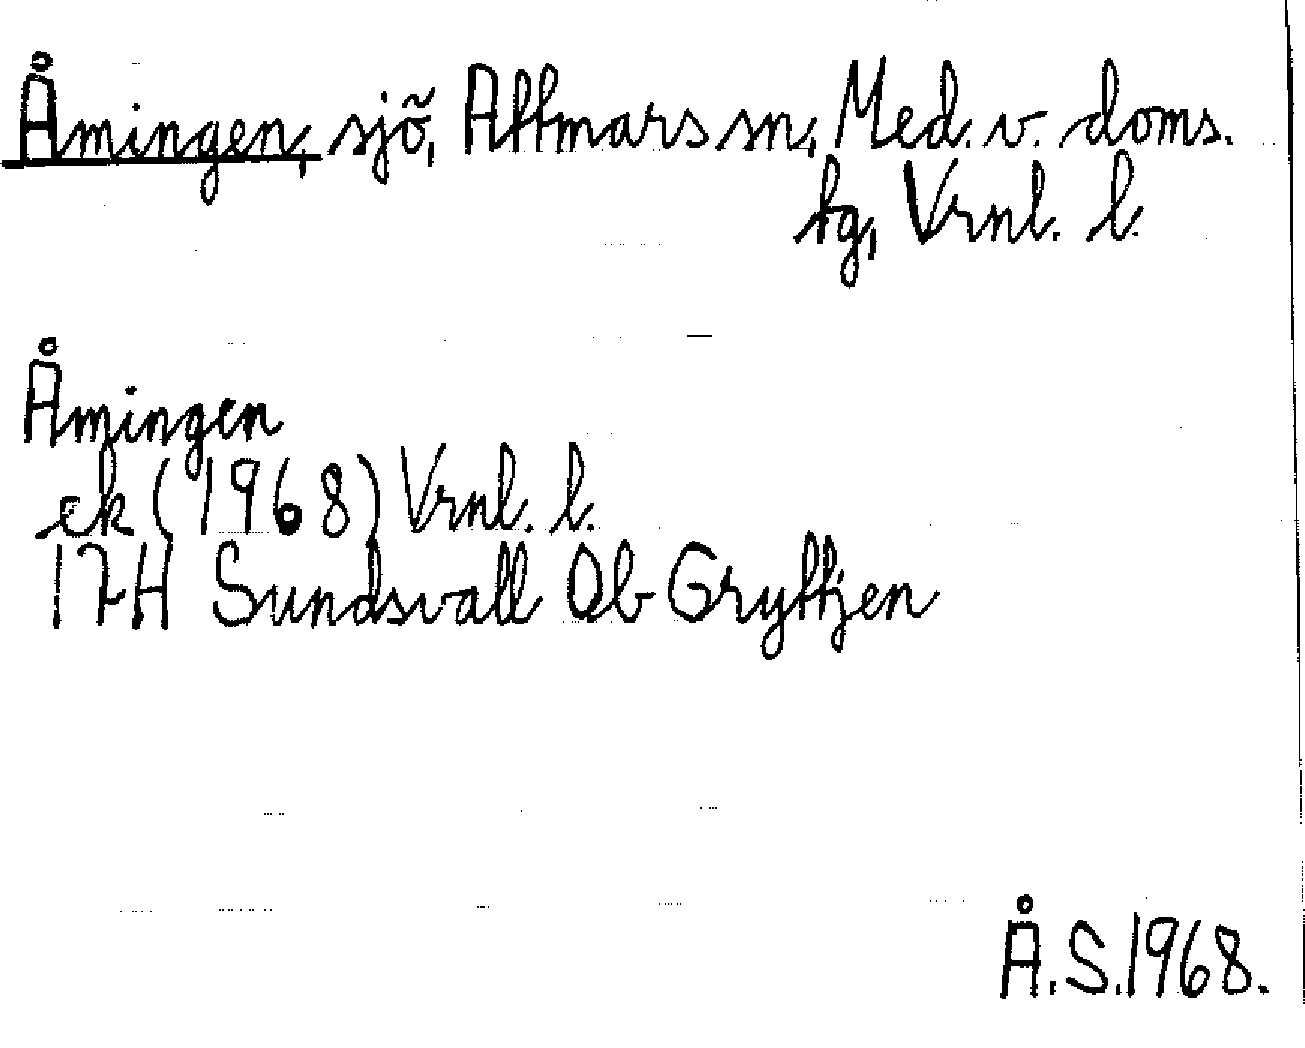 Åmingen, sjö, Attmars sn, Med. v. doms.
tg, Vrnl. l.
Åmingen
ek (1968) Vrnl. l.
17H Sundsvall Ob Gryttjen
Å.S.1968.